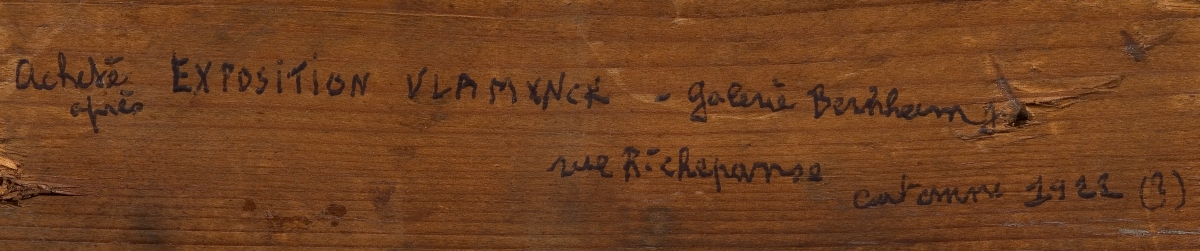 Acheté EXPOSITION VLAMYNCK - Galerie Bernheim j.
après
rue Richepanse
automne 1921 (?)